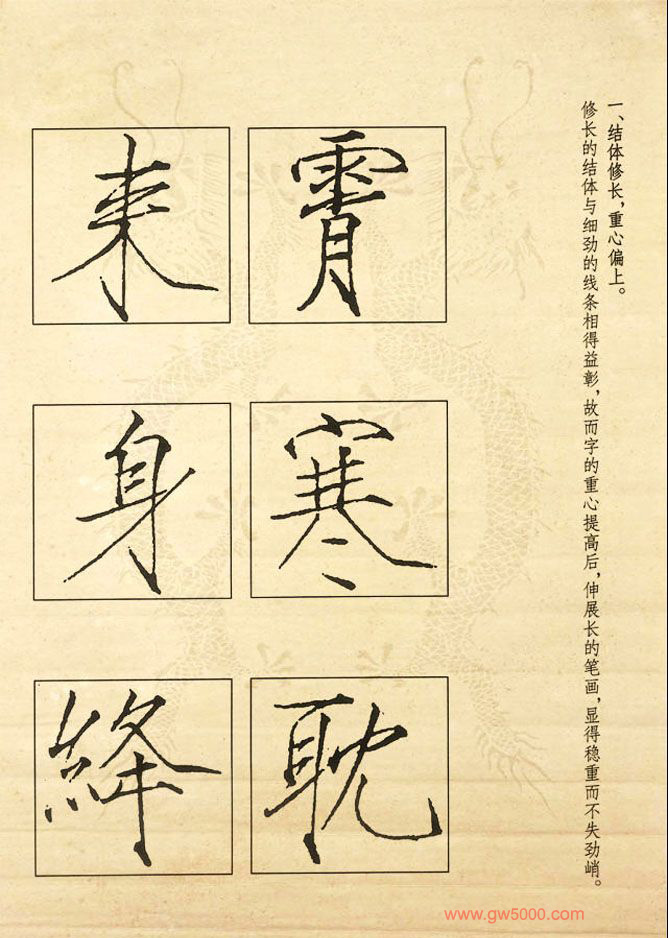 一、结体修长，重心偏上。
修长的结体与细劲的线条相得益彰，故而字的重心提高后，伸展长的笔画，显得稳重而不失劲峭。
霄
寒
耽
身
絳
www.gw5000.com